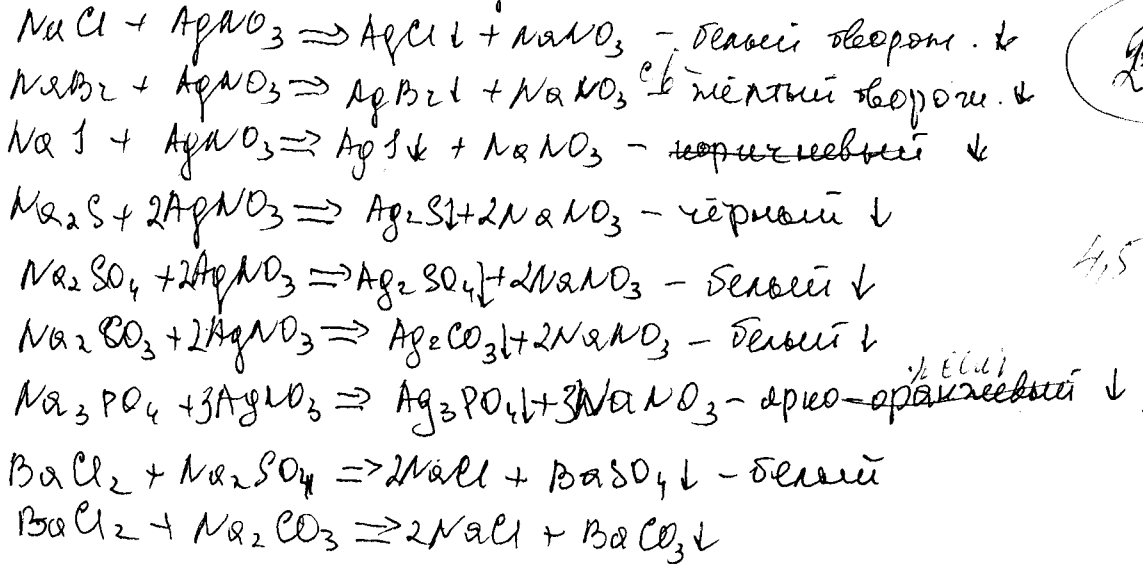 NaCl + AgNO₃ ⇒ AgCl↓ + NaNO₃ - белый творож. ↓
NaBr + AgNO₃ ⇒ AgBr↓ + NaNO₃ - св. жёлтый творож. ↓
NaI + AgNO₃ ⇒ AgI↓ + NaNO₃ - коричневый ↓
Na₂S + 2AgNO₃ ⇒ Ag₂S↓ + 2NaNO₃ - чёрный ↓
Na₂SO₄ + 2AgNO₃ ⇒ Ag₂SO₄↓ + 2NaNO₃ - белый ↓
4,5
Na₂CO₃ + 2AgNO₃ ⇒ Ag₂CO₃↓ + 2NaNO₃ - белый ↓
Na₃PO₄ + 3AgNO₃ ⇒ Ag₃PO₄↓ + 3NaNO₃ - ярко-оранжевый ↓
BaCl₂ + Na₂SO₄ ⇒ 2NaCl + BaSO₄↓ - белый
BaCl₂ + Na₂CO₃ ⇒ 2NaCl + BaCO₃↓